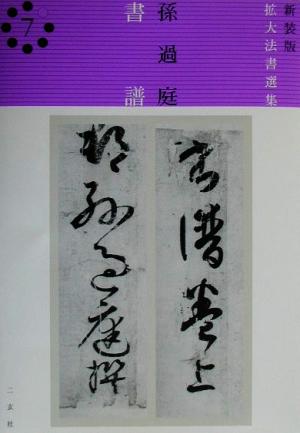 新装版
拡大法書選集
7
孫過庭
書譜
書譜卷上
郡孫過庭撰
二玄社